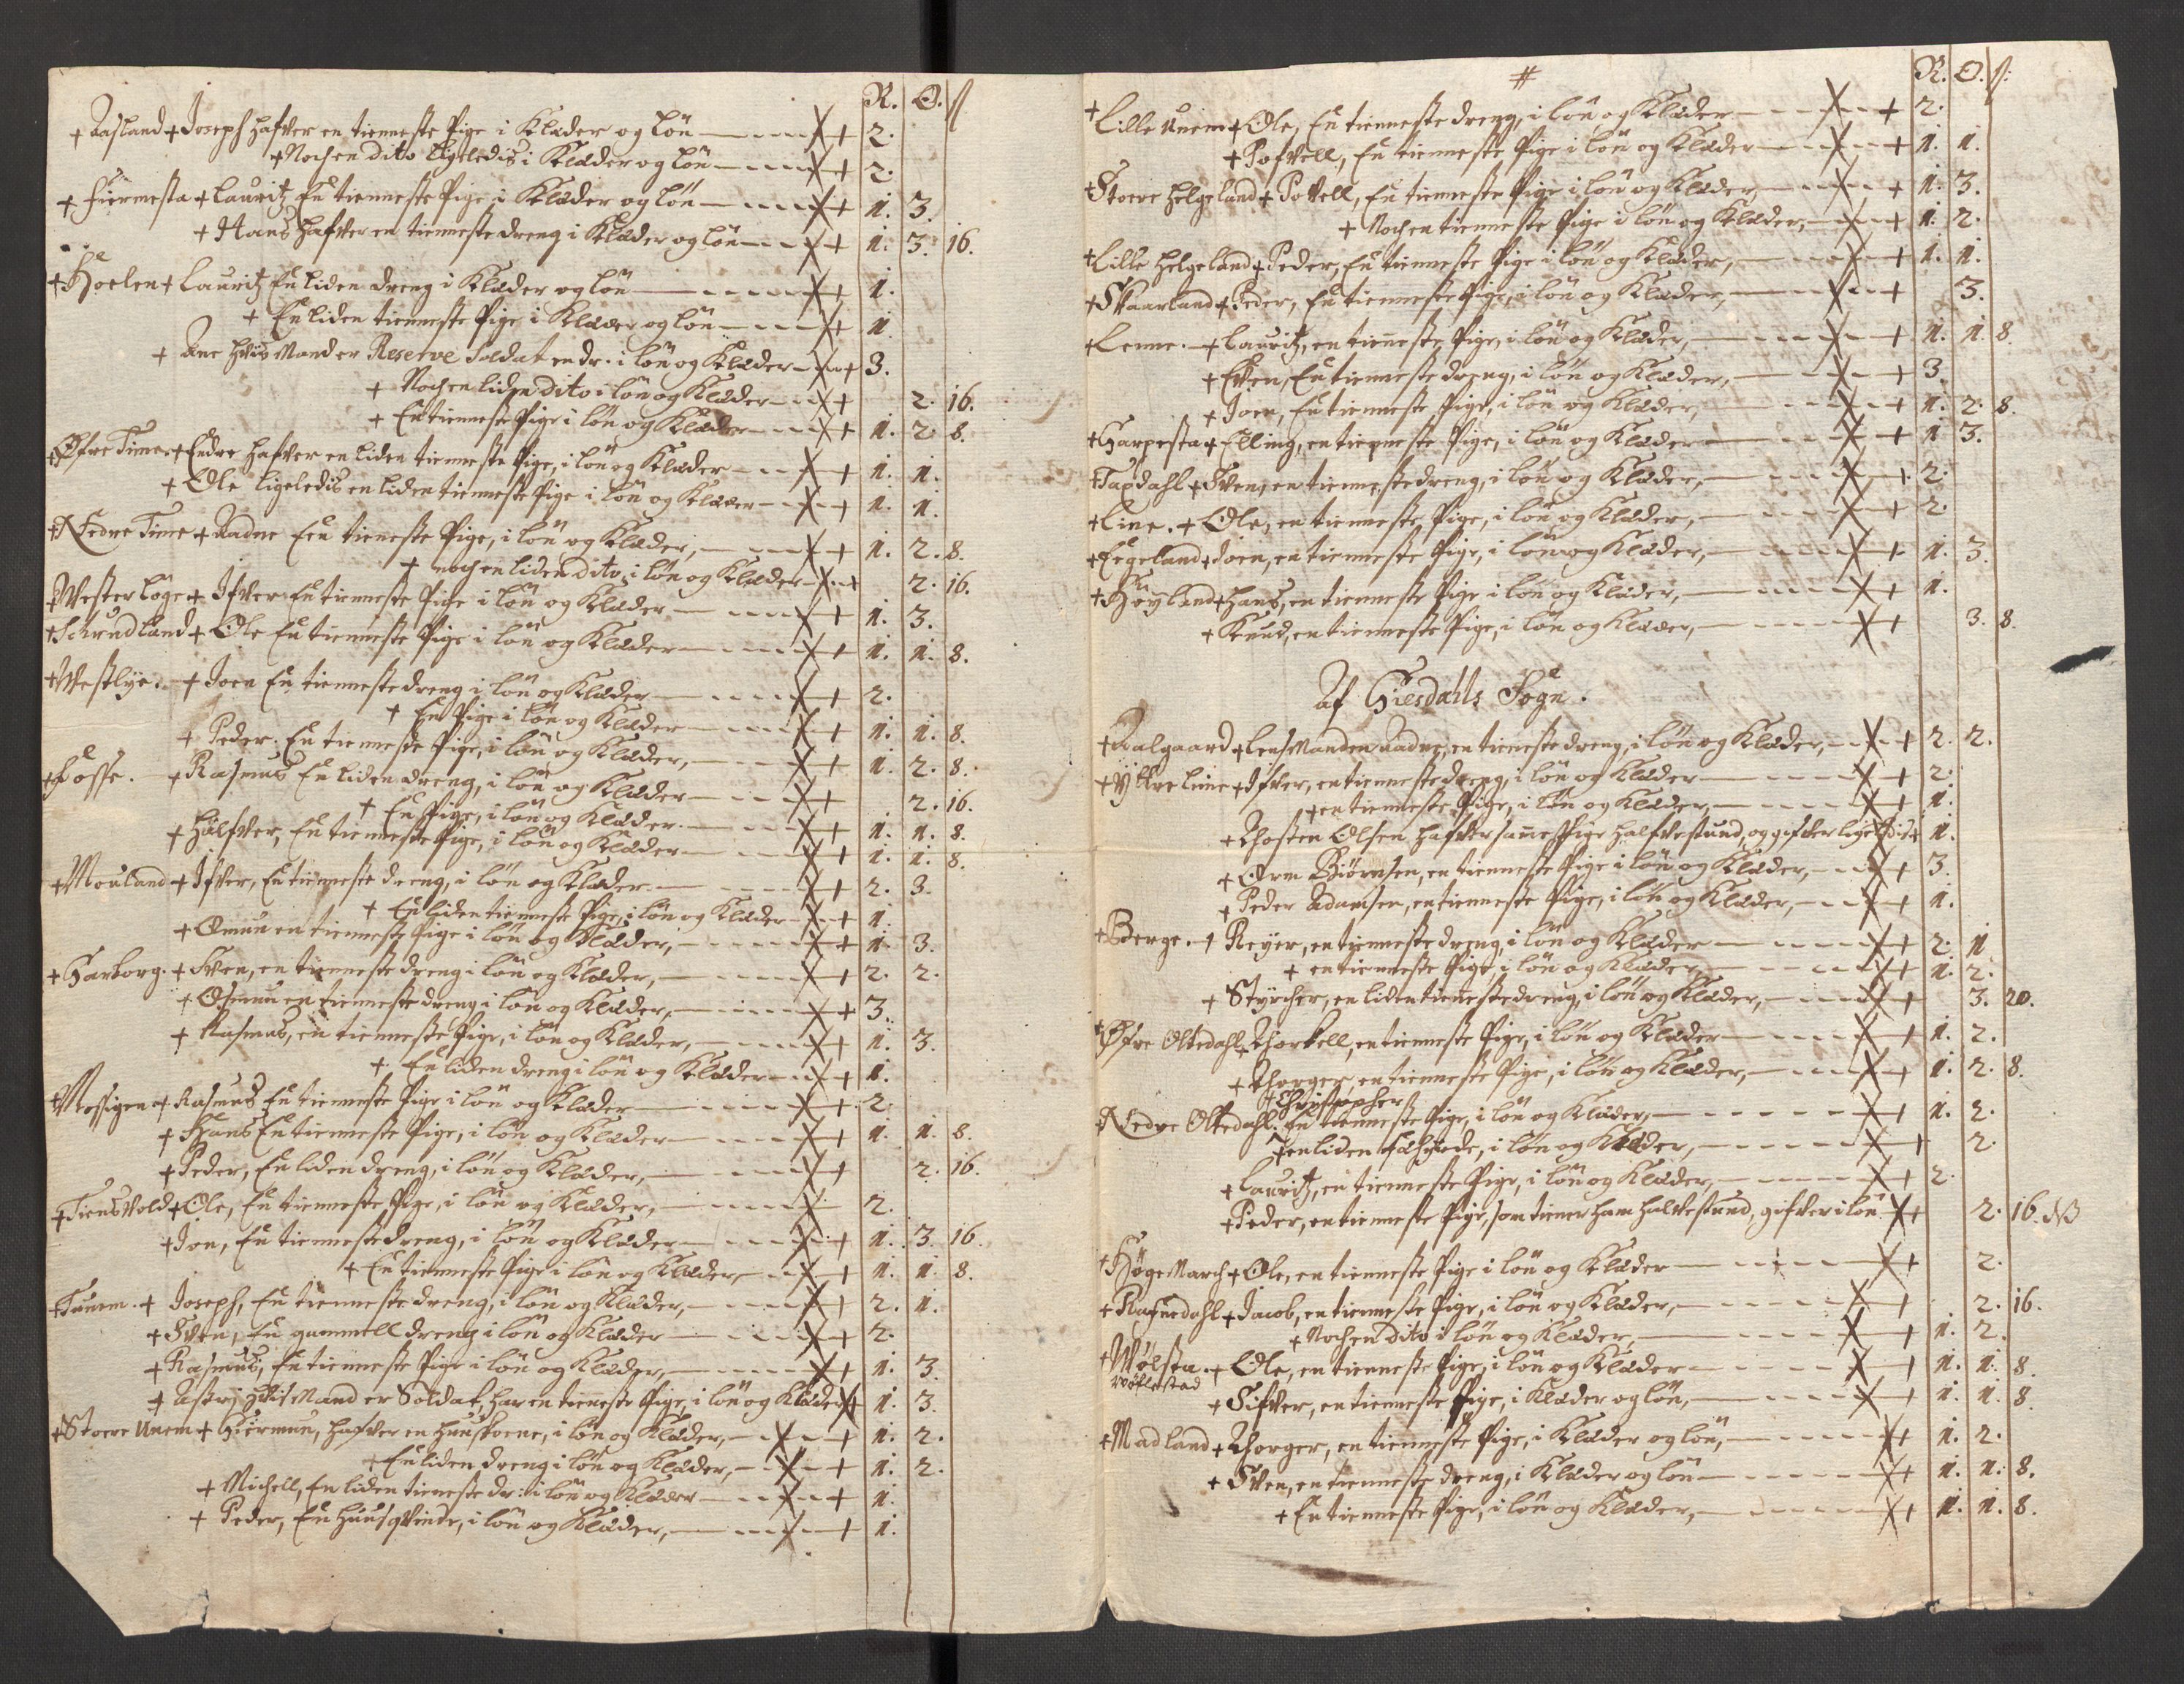 R. O. ß
+ Aasland + Joseph hafver en tienneste Pige i Klæder og Løn 2.
+ Noch en dito ligeledis i Klæder og Løn 2.
+ Fiermesta + Lauritz En tienneste Pige i Klæder og Løn 1. 3.
+ Hans hafver en tienneste dreng i Klæder og Løn 1. 3. 16.
+ Hoelen + Lauritz En liden dreng i Klæder og Løn 1.
+ En liden tienneste Pige i Klæder og Løn 1
+ Ane hvis Mand er Reserve Soldat en dr. i Løn og Klæder 3.
+ Noch en liden dito i Løn og Klæder 2. 16.
+ En tienneste Pige i Løn og Klæder 1. 2. 8.
+ Øfre Time + Endre hafver en liden tienneste Pige, i Løn og Klæder 1. 1.
+ Ole ligeledis en liden tienneste Pige i Løn og Klæder 1. 1.
+ Nedre Time + Aadne Een tieneste Pige, i Løn og Klæder, 1. 2. 8.
+ noch en liden dito, i Løn og Klæder 2. 16.
+ Vester Løge + Ifver En tienneste Pige i Løn og Klæder 1. 3.
+ Schrudland + Ole En tienneste Pige i Løn og Klæder 1. 1. 8.
+ Vestlye. + Joen En tienneste dreng i Løn og Klæder 2.
+ En Pige i Løn og Klæder 1. 1. 8.
+ Peder. En tienneste Pige, i Løn og Klæder, 1. 2. 8.
+ Fosse. + Rasmus En liden dreng, i Løn og Klæder 2. 16.
+ En Pige, i Løn og Klæder. 1. 1. 8.
+ Halfver, En tienneste Pige, i Løn og Klæder 1. 1. 8.
+ Mouland + Ifver, En tienneste dreng, i Løn og Klæder. 2. 3.
+ En liden tienneste Pige, i Løn og Klæder 1.
+ Omun en tienneste Pige i Løn og Klæder, 1. 3.
+ Garborg. + Sven, en tienneste dreng i Løn og Klæder, 2. 2.
+ Osmun en tienneste dreng i Løn og Klæder, 3.
+ Rasmus, en tienneste Pige, i Løn og Klæder, 1. 3.
+ En liden dreng i Løn og Klæder 1.
+ Mossigen + Rasmus En tienneste Pige i Løn og Klæder 2.
+ Hans En tienneste Pige, i Løn og Klæder 1. 1. 8.
+ Peder, En liden dreng, i Løn og Klæder, 2. 16.
+ Tiensvold + Ole, En tienneste Pige, i Løn og Klæder, 2.
+ Jon, En tienneste dreng, i Løn og Klæder 1. 3. 16.
+ En tienneste Pige i Løn og Klæder, 1. 1. 8.
+ Tunem. + Joseph, En tienneste dreng, i Løn og Klæder, 2. 1.
+ Sven, En gammell dreng i Løn og Klæder 2.
+ Rasmus, En tienneste Pige i Løn og Klæder, 1. 3.
+ Astri hvis Mand er Soldat, har en tienneste Pige, i Løn og Klæder 1. 3.
+ Stoere Unem + Giermun, hafver en huuskone, i Løn og Klæder, 1. 2.
+ En liden dreng i Løn og Klæder, 1. 2.
+ Michell, En liden tieneste dr: i Løn og Klæder 1.
+ Peder, En huusqvinde, i Løn og Klæder, 1.
# R. O. ß:
+ Lille Unem + Ole, En tienneste dreng, i Løn og Klæder 2.
+ Pofvell, En tienneste Pige i Løn og Klæder 1. 1.
+ Stoere Helgeland + Povell, En tienneste Pige i Løn og Klæder, 1. 3.
+ Noch en tienneste Pige i Løn og Klæder, 1. 2.
+ Lille Helgeland + Peder, En tienneste Pige i Løn og Klæder, 1. 1.
+ Skaarland + Peder, En tienneste Pige, i Løn og Klæder, 3.
+ Lenne. + Lauritz, en tienneste Pige, i Løn og Klæder, 1. 1. 8.
+ Sven, En tienneste dreng, i Løn og Klæder, 3.
+ Joen, En tienneste Pige, i Løn og Klæder, 1. 2. 8.
+ Harpesta + Elling, en tienneste Pige, i Løn og Klæder 1 3.
+ Taxdahl + Sven, en tienneste dreng, i Løn og Klæder, 2.
+ Line. + Ole, en tienneste Pige, i Løn og Klæder, 2.
+ Eegeland + Joen, en tienneste Pige, i Løn og Klæder, 1. 3.
+ Høyland + Hans, en tienneste Pige i Løn og Klæder, 1.
+ Knud, en tienneste Pige, i Løn og Klæder, 3. 8.
Af Giesdahls Sogn.
+ Aalgaard + Lensmanden Aadne, en tieneste dreng, i Løn og Klæder, 2. 2.
+ Yttre Line + Ifver, en tienneste dreng, i Løn og Klæder 2.
+ en tienneste Pige, i Løn og Klæder, 1.
+ Thosten Olsen hafver samme Pige halfve stund, og gifver ligeledis + 1.
+ Orm Biørnsen, en tienneste Pige i Løn og Klæder, 3.
+ Peder Adamsen, en tienneste Pige, i Løn og Klæder, 1.
+ Berge. + Reyer, en tienneste dreng, i Løn og Klæder 2. 1
+ en tienneste Pige, i Løn og Klæder 1. 2.
+ Styrcher, en liden tieneste dreng, i Løn og Klæder, 3. 20.
+ Øfre Oltedahl + Thorkell, en tienneste Pige, i Løn og Klæder 1. 2.
+ Thorger, en tienneste Pige, i Løn og Klæder, 1. 2. 8.
+ Christopher
+ Nedre Oltedahl. En tienneste Pige, i Løn og Klæder, 1. 2.
+ en liden fæhyrde, i Løn og Klæder, 2.
+ Lauritz, en tienneste Pige, i Løn og Klæder, 2.
+ Peder, en tienneste Pige, som tiener ham halve stund, gifver i Løn 2. 16.
+ Høge March + Ole, en tienneste Pige i Løn og Klæder 2.
+ Rafnedahl + Jacob, en tienneste Pige, i Løn og Klæder, 2. 16.
+ Noch en dito i Løn og Klæder, 1. 2.
+ Vølsta. + Ole, en tienneste Pige, i Løn og Klæder 1. 1. 8
Wølestad
+ Sifver, en tienneste Pige, i Klæder og Løn, 1. 1. 8
+ Madland + Thorger, en tienneste Pige, i Klæder og Løn, 1. 2.
+ Sven, en tienneste dreng, i Klæder og Løn 1. 1. 8.
+ En tienneste Pige, i Løn og Klæder, 1. 1. 8.